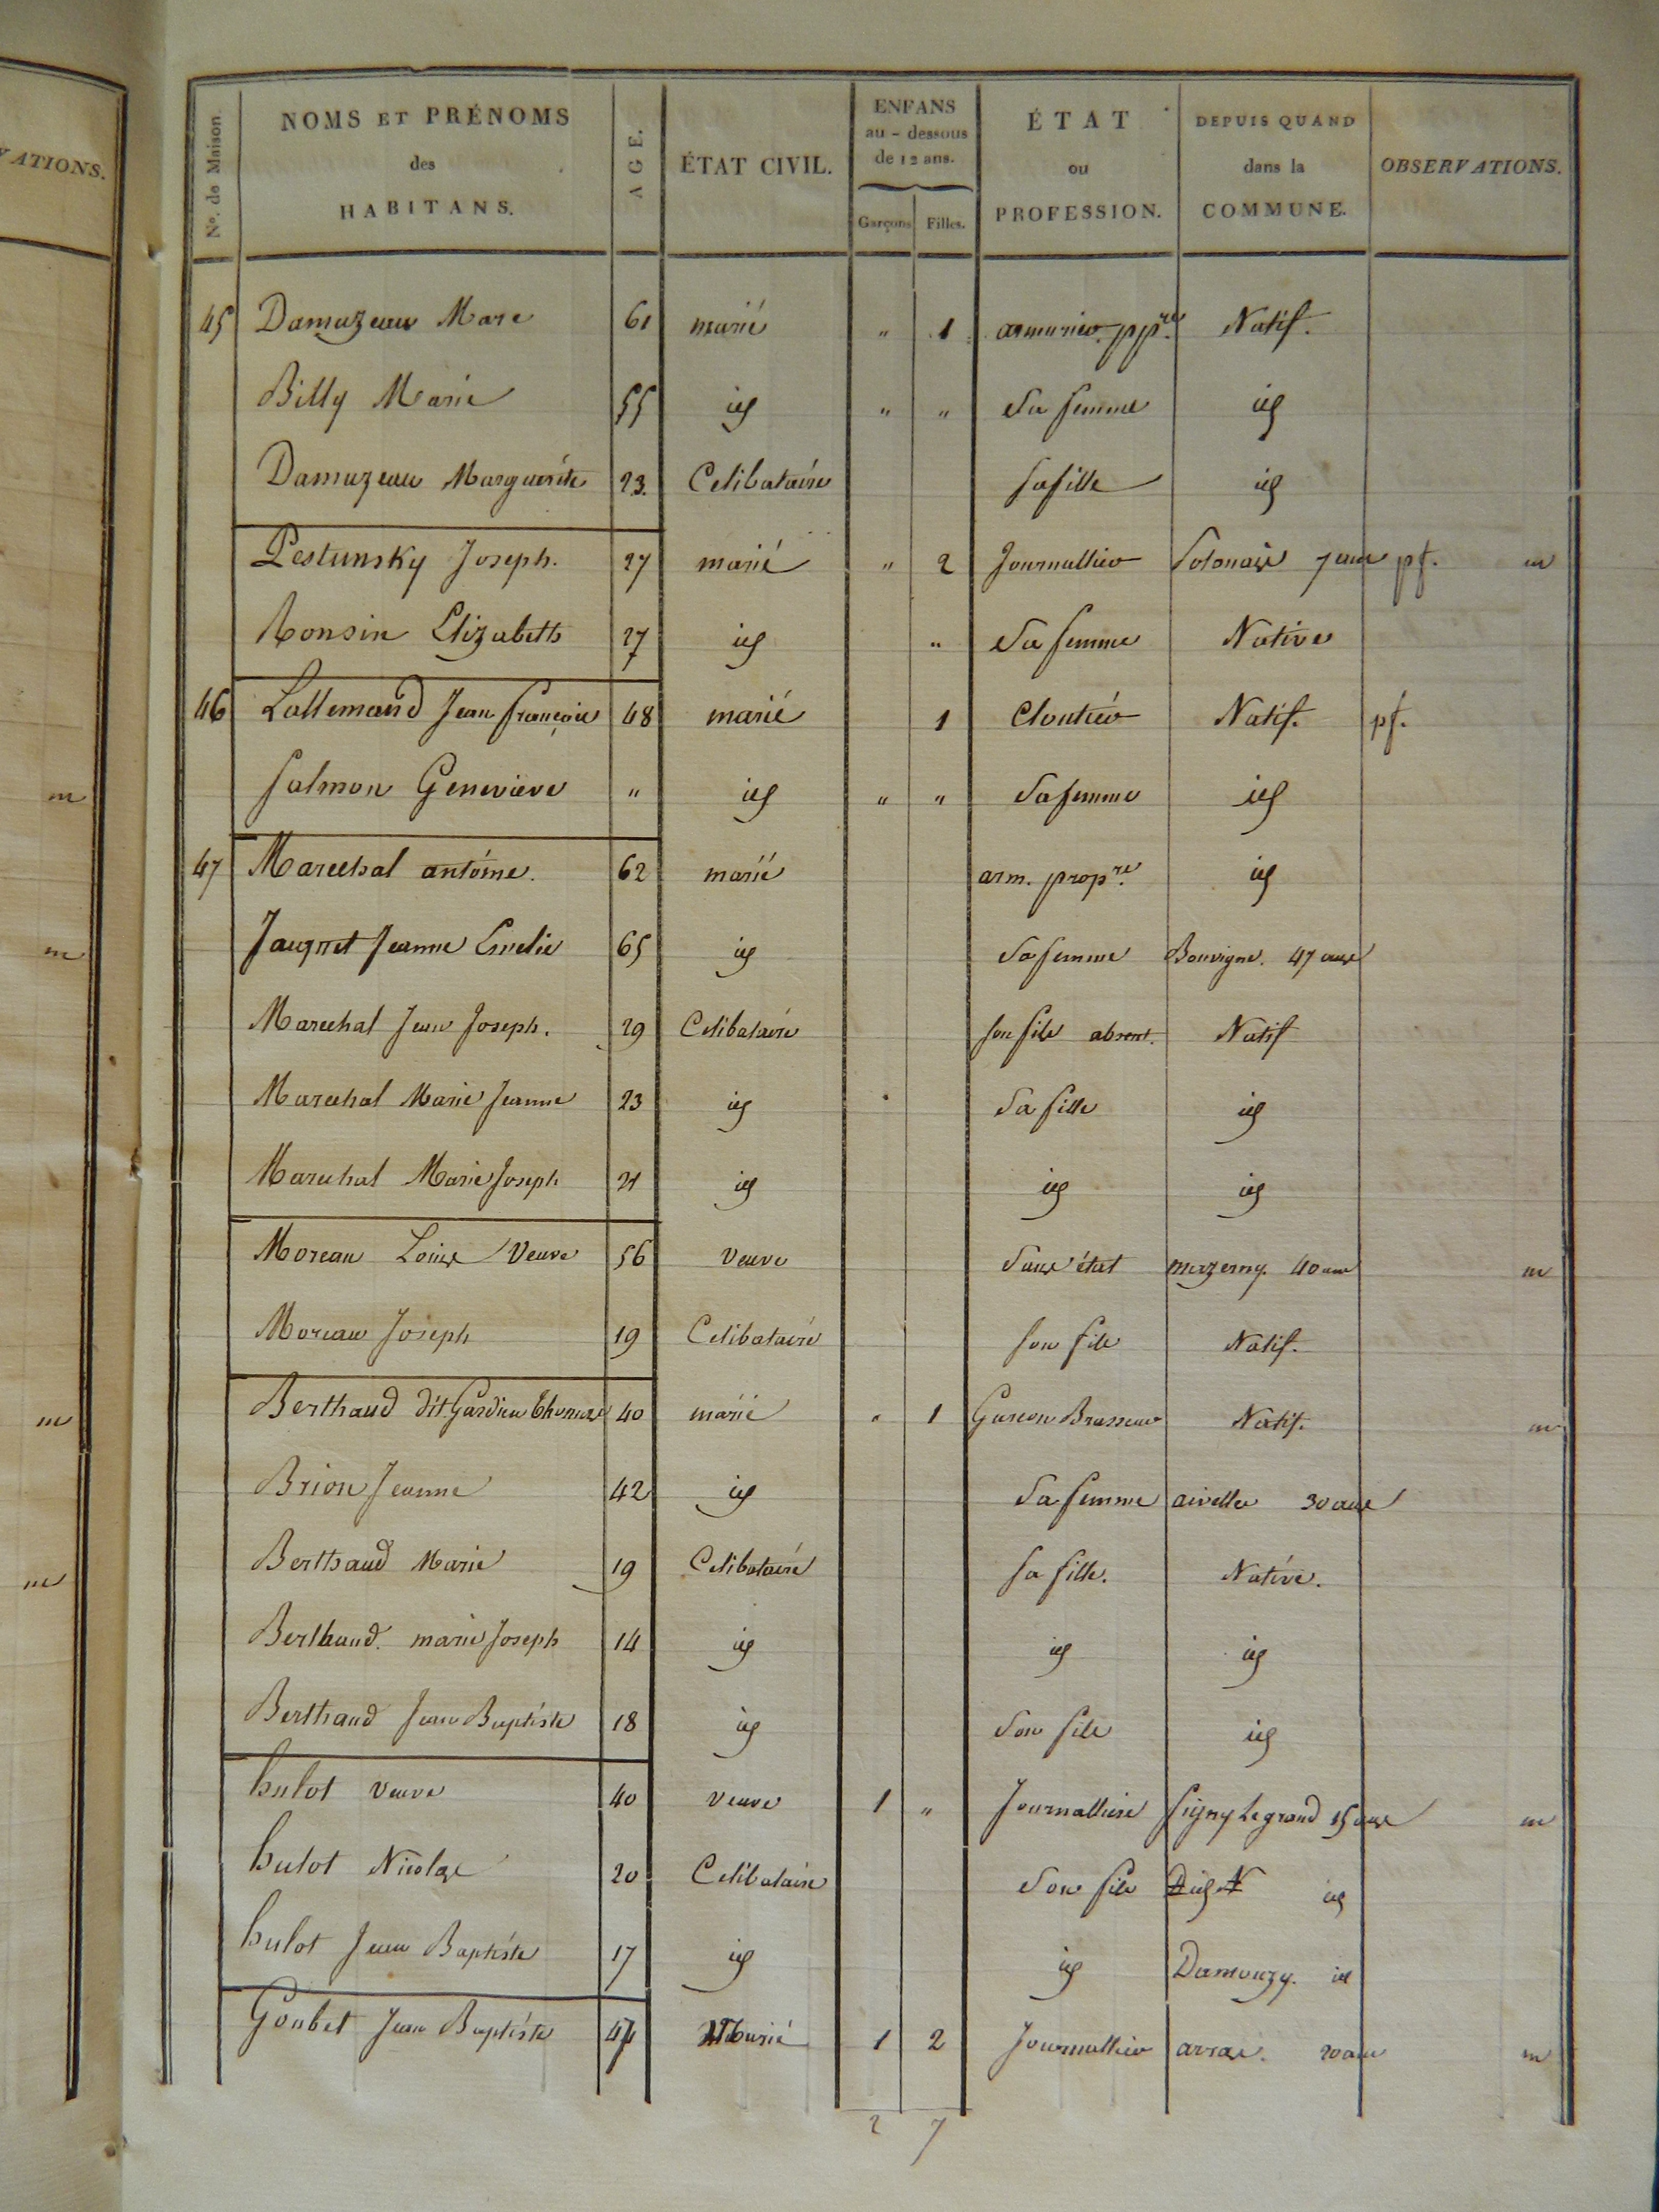 VATIONS.
Nº. de Maison. NOMS ET PRÉNOMS des HABITANS. AGE. ÉTAT CIVIL. ENFANS au-dessous de 12 ans. Garçons Filles. ÉTAT ou PROFESSION. DEPUIS QUAND dans la COMMUNE. OBSERVATIONS.
45 Damuzeau Marc 61 marié " 1 armurier ppre. Natif.
Billy Marie 55 id " " Sa femme id
Damuzeau Marguerite 23. Celibataire sa fille id
Pestunsky Joseph. 27 marié " 2 Journallier Polonais 7 ans pf. m
Ronsin Elizabeth 27 id " Sa femme Native
46 Lallemand Jean françois 48 marié 1 Cloutier Natif. pf.
Salmon Genevieve " id " " Sa femme id
47 Marechal antoine. 62 marié arm. propre. id
Jauqnet Jeanne Emelie 65 id Sa femme Bouvigne. 47 ans
Marechal Jean Joseph. 29 Celibataire son fils absent. Natif
Marechal Marie Jeanne 23 id Sa fille id
Marechal Marie Joseph 21 id id id
Moreau Louise Veuve 56 veuve Sans état mazerny. 40 ans m
Moreau Joseph 19 Celibataire son fils Natif.
Berthaud dit Gardien Thomas 40 marié " 1 Garcon Brasseur Natif. m
Brion Jeanne 42 id Sa femme aivelle 30 ans
Berthaud Marie 19 Celibataire sa fille. Native.
Berthaud. marie Joseph 14 id id id
Berthaud Jean Baptiste 18 id Son fils id
hulot veuve 40 veuve 1 " Journalliere Signy Le grand 15 ans m
hulot Nicolas 20 Celibataire Son fils id id
hulot Jean Baptiste 17 id id Damouzy. id
Goubet Jean Baptiste 47 Marié 1 2 Journallier arras. 20 ans m
2 7